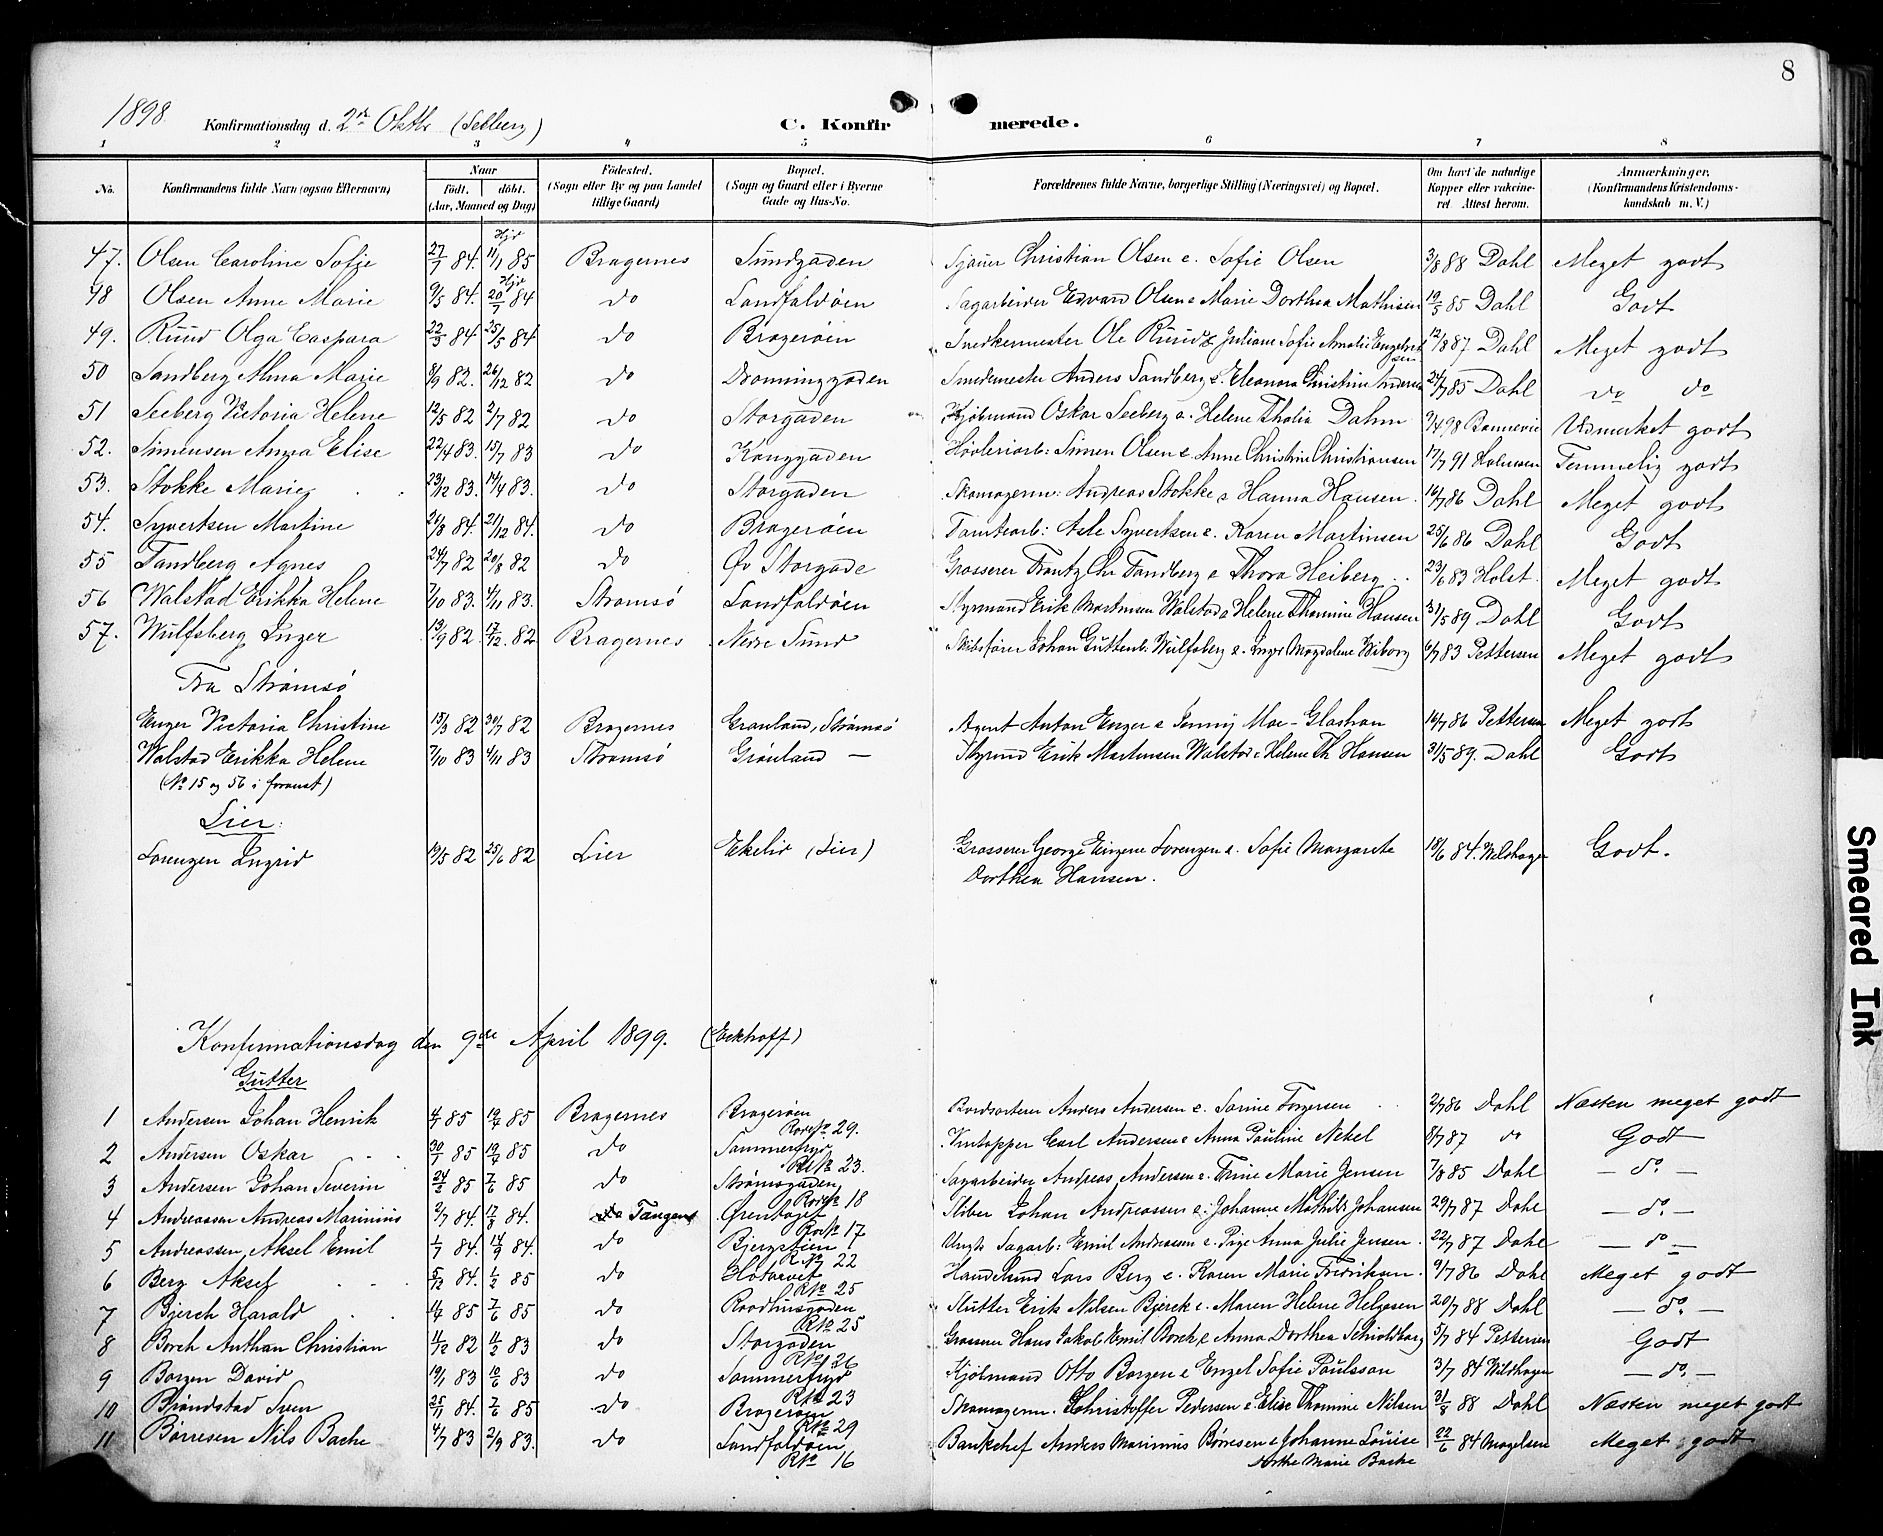 8
1898. Konfirmationsdag d. 2den Oktbr (Seeberg) C. Konfirmerede.
1 2 3 4 5 6 7 8
No. Konfirmandens fulde Navn (ogsaa Efternavn) Naar født. døbt. (Aar, Maaned og Dag) Fødested. (Sogn eller By og paa Landet tillige Gaard) Bopæl. (Sogn og Gaard eller i Byerne Gade og Hus-No. Forældrenes fulde Navne, borgerlige Stilling (Næringsvei) og Bopæl. Om havt de naturlige Kopper eller vakcineret. Attest herom. Anmærkninger. (Konfirmandens Kristendomskundskab m. V.)
47. Olsen Caroline Sofie 27/7 84. Hjd 11/1 85 Bragernes Sundgaden Sjauer Christian Olsen e. Sofie Olsen 3/8 88 Dahl Meget godt
48 Olsen Anne Marie 9/5 84. Hjd 20/7 84 do Landfaldøen Sagarbeider Edvard Olsen e Marie Dorthea Mathisen 19/5 85 Dahl Godt
49. Ruud Olga Caspara 22/3 84 25/5 84 do Bragerøen Snedkermester Ole Ruud & Juliane Sofie Amalie Engebretsen 12/8 87 Dahl Meget godt
50 Sandberg Alma Marie 8/9 82. 26/12 82 do Dronninggaden Smedemester Anders Sandberg e. Eleonora Christine Andersen 24/7 85 Dahl do do
51 Seeberg Victoria Helene 12/5 82 2/7 82 do Storgaden Kjøbmand Oskar Seeberg e. Helene Thalia Dahm 9/4 98 Bonnevie Udmerket godt
52. Simensen Anna Elise 22/4 83. 15/7 83 do Konggaden Høvleriarb: Simen Olsen e. Anne Christine Christiansen 17/7 91 Holmsen Temmelig godt
53. Stokke Marie 23/12 83. 14/4 83. do Storgaden Skomagerm: Andreas Stokke e Hanna Hansen. 16/7 86 Dahl Meget godt
54. Syvertsen Martine 21/8 84. 21/12 84. do Bragerøen Tomtearb: Asle Syvertsen e. Karen Martinsen 25/6 86 Dahl Godt
55 Tandberg Agnes 24/7 82 20/8 82 do Øv Storgade Grosserer Frantz Chr Tandberg e Thora Heiberg 23/6 83 Holst. Meget godt
56 Walstad Erikka Helene 7/10 83. 4/11 83. Strømsø Landfaldøen Styrmand Erik Martinsen Walstad e Helene Thomine Hansen 31/5 89 Dahl Godt
57. Wulfsberg Inger 13/9 82. 17/12 82 Bragernes Nedre Sund Skibsfører Johan Guttenb: Wulfsberg e. Inger Magdalene Wiborg 6/7 83 Pettersen Meget godt
Fra Strømsø
Enger Victoria Christine 15/3 82 30/7 82 Bragernes Grønland, Strømsø Agent Anton Enger e Jenny Moe-Glashan 16/7 86 Pettersen Meget godt
Walstad Erikka Helene 7/10 83 4/11 83 Strømsø Grønland — Styrmd Erik Martinsen Walstad e Helene Th Hansen 31/5 89. Dahl Godt
(No 15 og 56 i foranst)
Lier:
Lorenzen Ingrid 19/5 82 25/6 82 Lier Ekelid (Lier) Grosserer George Eugene Lorenzen e. Sofie Margarete 18/6 84. Wilshagen Godt.
Dorthea Hansen.
Konfirmationsdag den 9de April 1899. (Eckhoff)
Gutter
1 Andersen Johan Henrik 4/5 85 19/7 85 Bragernes Bragerøen Rode No 29. Bordsorterer Anders Andersen e. Sorine Torgersen 2/7 86 Dahl Næsten meget godt
2 Andersen Oskar 30/1 85 19/7 85 do Sommerfryd R No 23. Vintapper Carl Andersen e Anna Pauline Nebel 8/7 87 do Godt
3 Andersen Johan Severin 24/2 85 7/6 85 do Strømsgaden Rode No 18 Sagarbeider Andreas Andersen e. Trine Marie Jensen 7/8 85 Dahl — do. —
4 Andreassen Andreas Marinius 2/7 84. 17/8 84. do Tangen Ørentaget Rode No 17 Sliber Johan Andreassen e. Johanne Mathilde Johansen 29/7 87 Dahl — do. —
5 Andreassen Aksel Emil 1/7 84. 14/9 84. do Bjergstien R No 22 Ungk Sagarb: Emil Andreassen e. Pige Anna Julie Jensen. 22/7 87 Dahl — do —
6 Berg Aksel 5/12 84. 1/2 85 do Hotorvet R No 25 Handelsmd Lars Berg e. Karen Marie Fredriksen. 9/7 86 Dahl Meget godt
7 Bjerck Harald 4/4 85 7/6 85 do Raadhusgaden R No 25 Slutter Erik Nilsen Bjerck e. Maren Helene Helgesen 20/7 88 Dahl — do. —
8 Borch Anthon Christian 11/12 82 4/3 83 do Storgaden R No 26 Grosserer Hans Jakob Emil Borch e Anna Dorthea Schioldborg 5/7 84 Pettersen Godt
9 Borgen David 19/1 83 10/6 83 do Sommerfryd R No 23 Kjøbmand Otto Borgen e Engel Sofie Paulsson 3/7 84 Wilshagen — do. —
10 Brøndstad Sven 25/11 84. 7/6 85 do Bragerøen R No 29 Skomagerm. Christoffer Pedersen e Elise Thomine Nilsen 31/8 88 Dahl Næsten meget godt
11 Børresen Nils Bache 4/7 83 2/9 83. do Landfaldøen R No 16 Bankchef Anders Marinius Børresen e Johanne Louise 22/6 84 Magelsen Meget godt
Dorthe Marie Bache
Smeared Ink